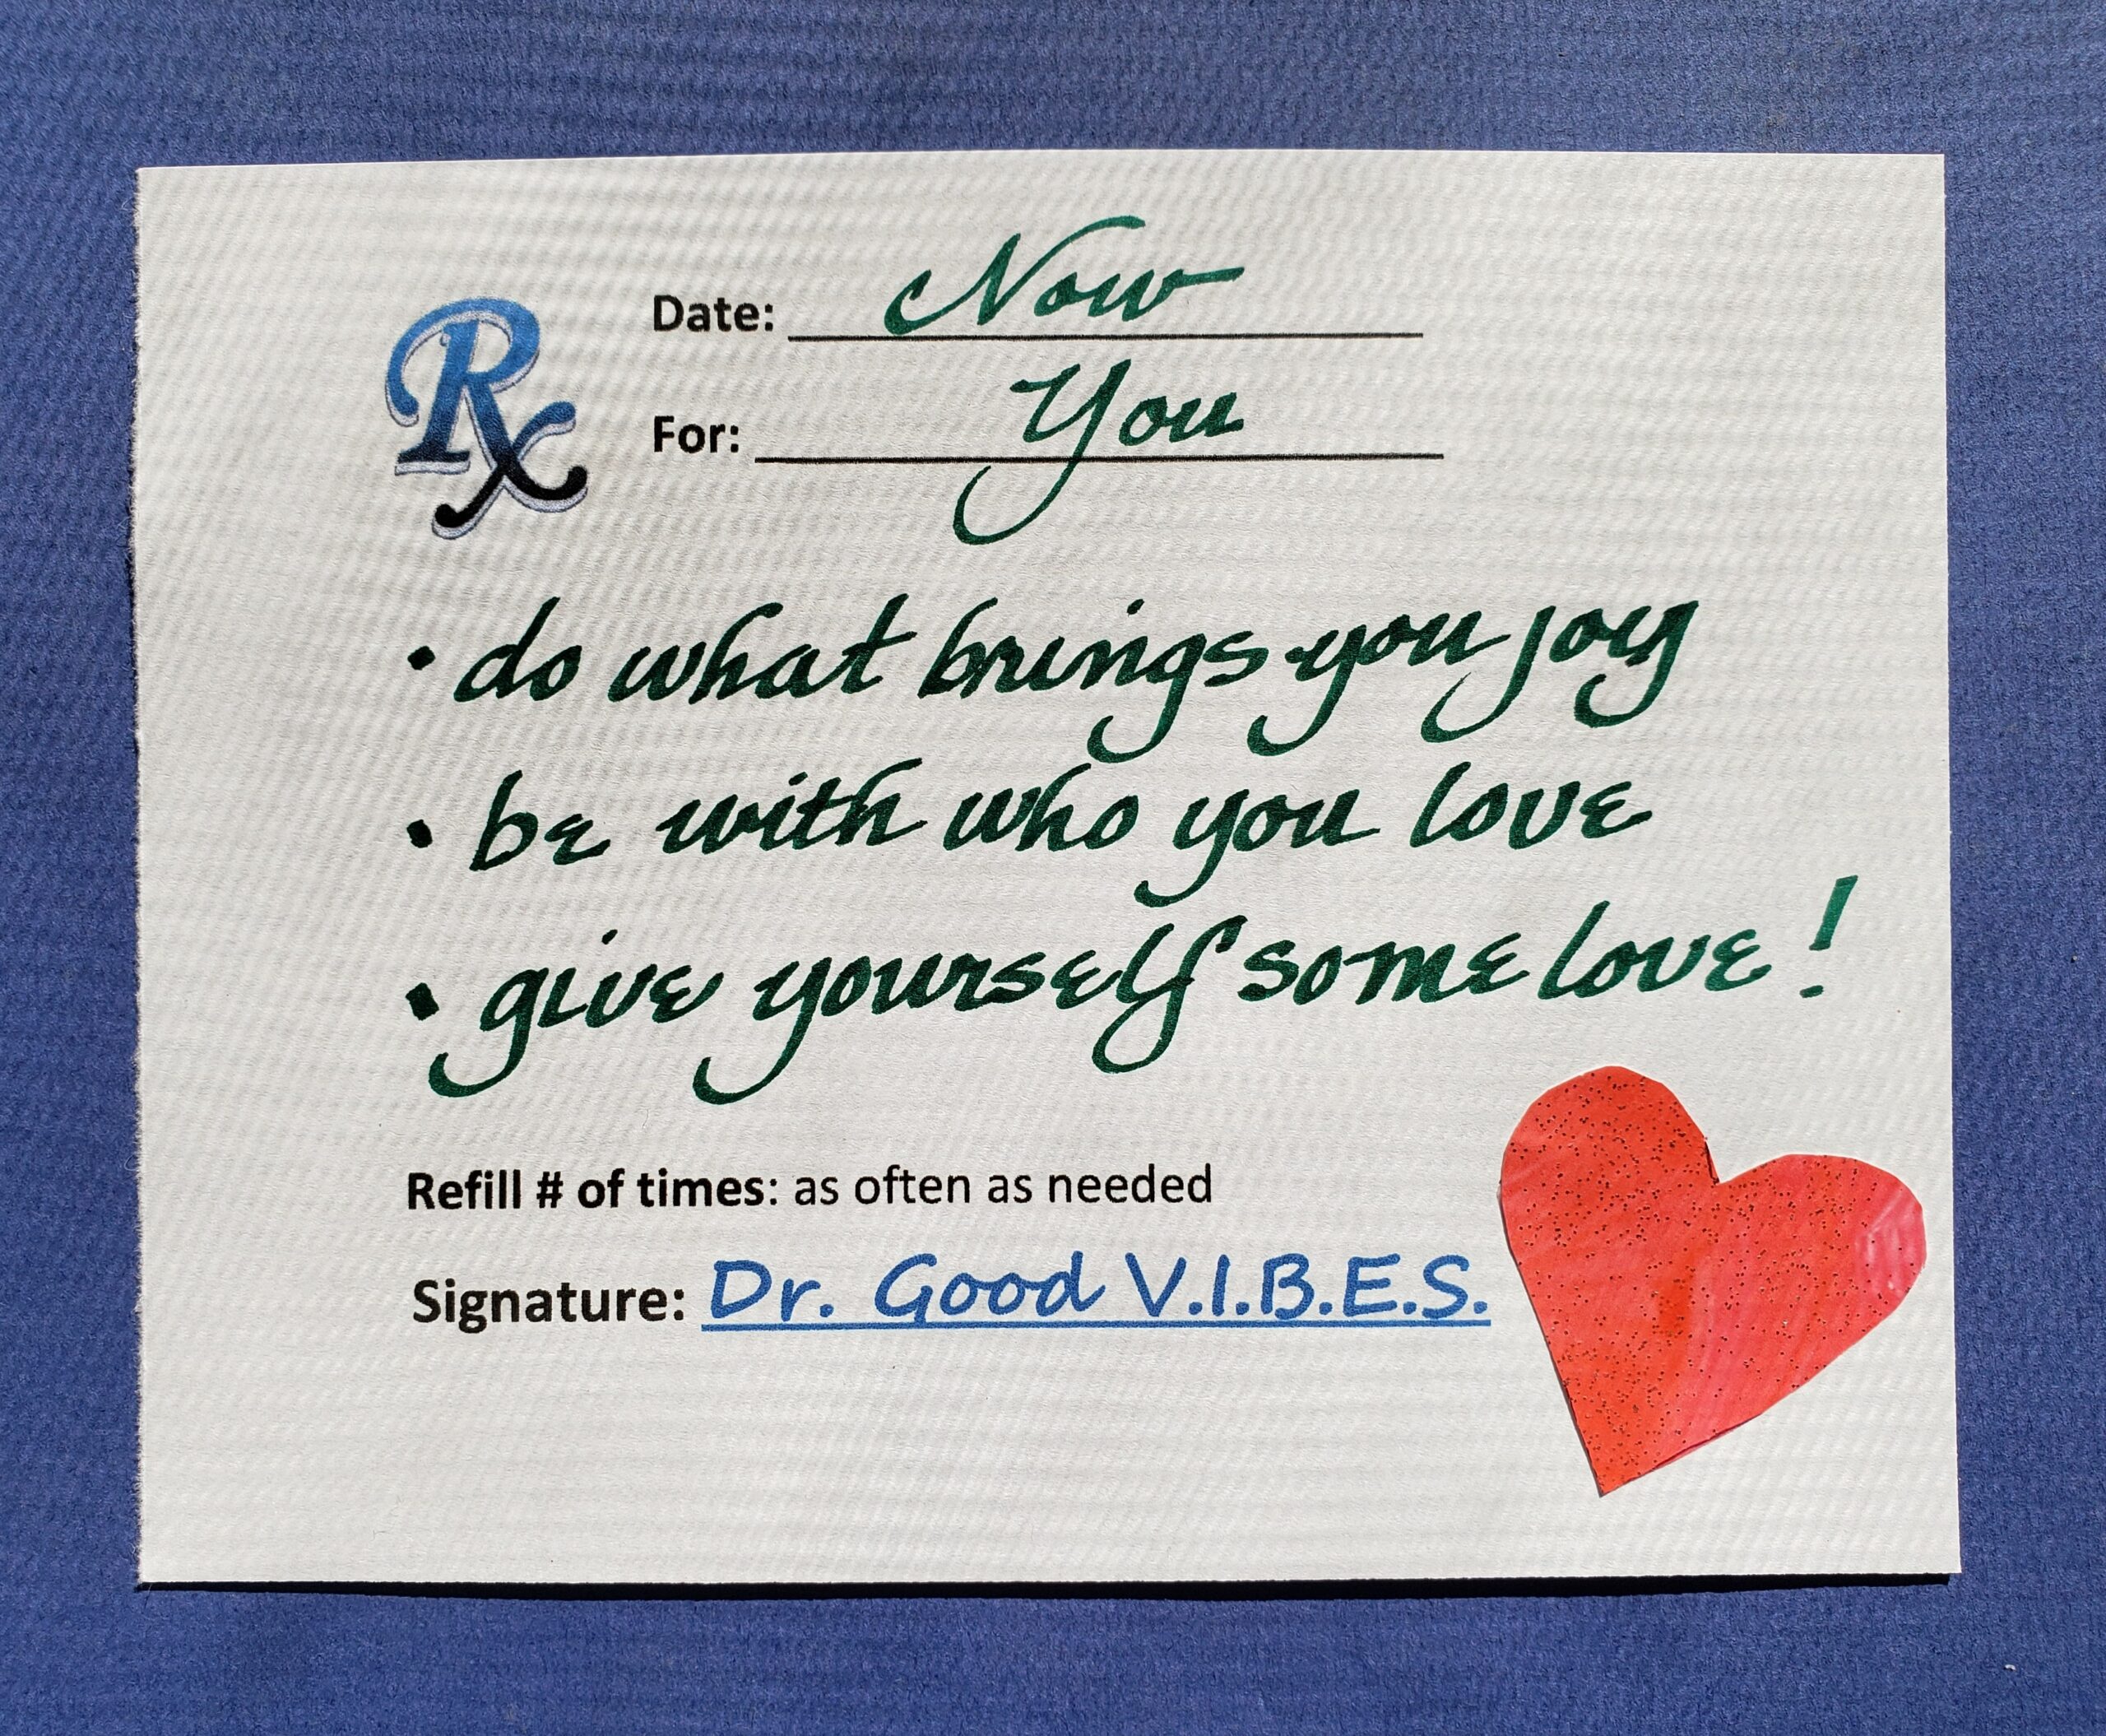 Rx
Date: Now
For: You
• do what brings you joy
• be with who you love
• give yourself some love!
Refill # of times: as often as needed
Signature: Dr. Good V.I.B.E.S.